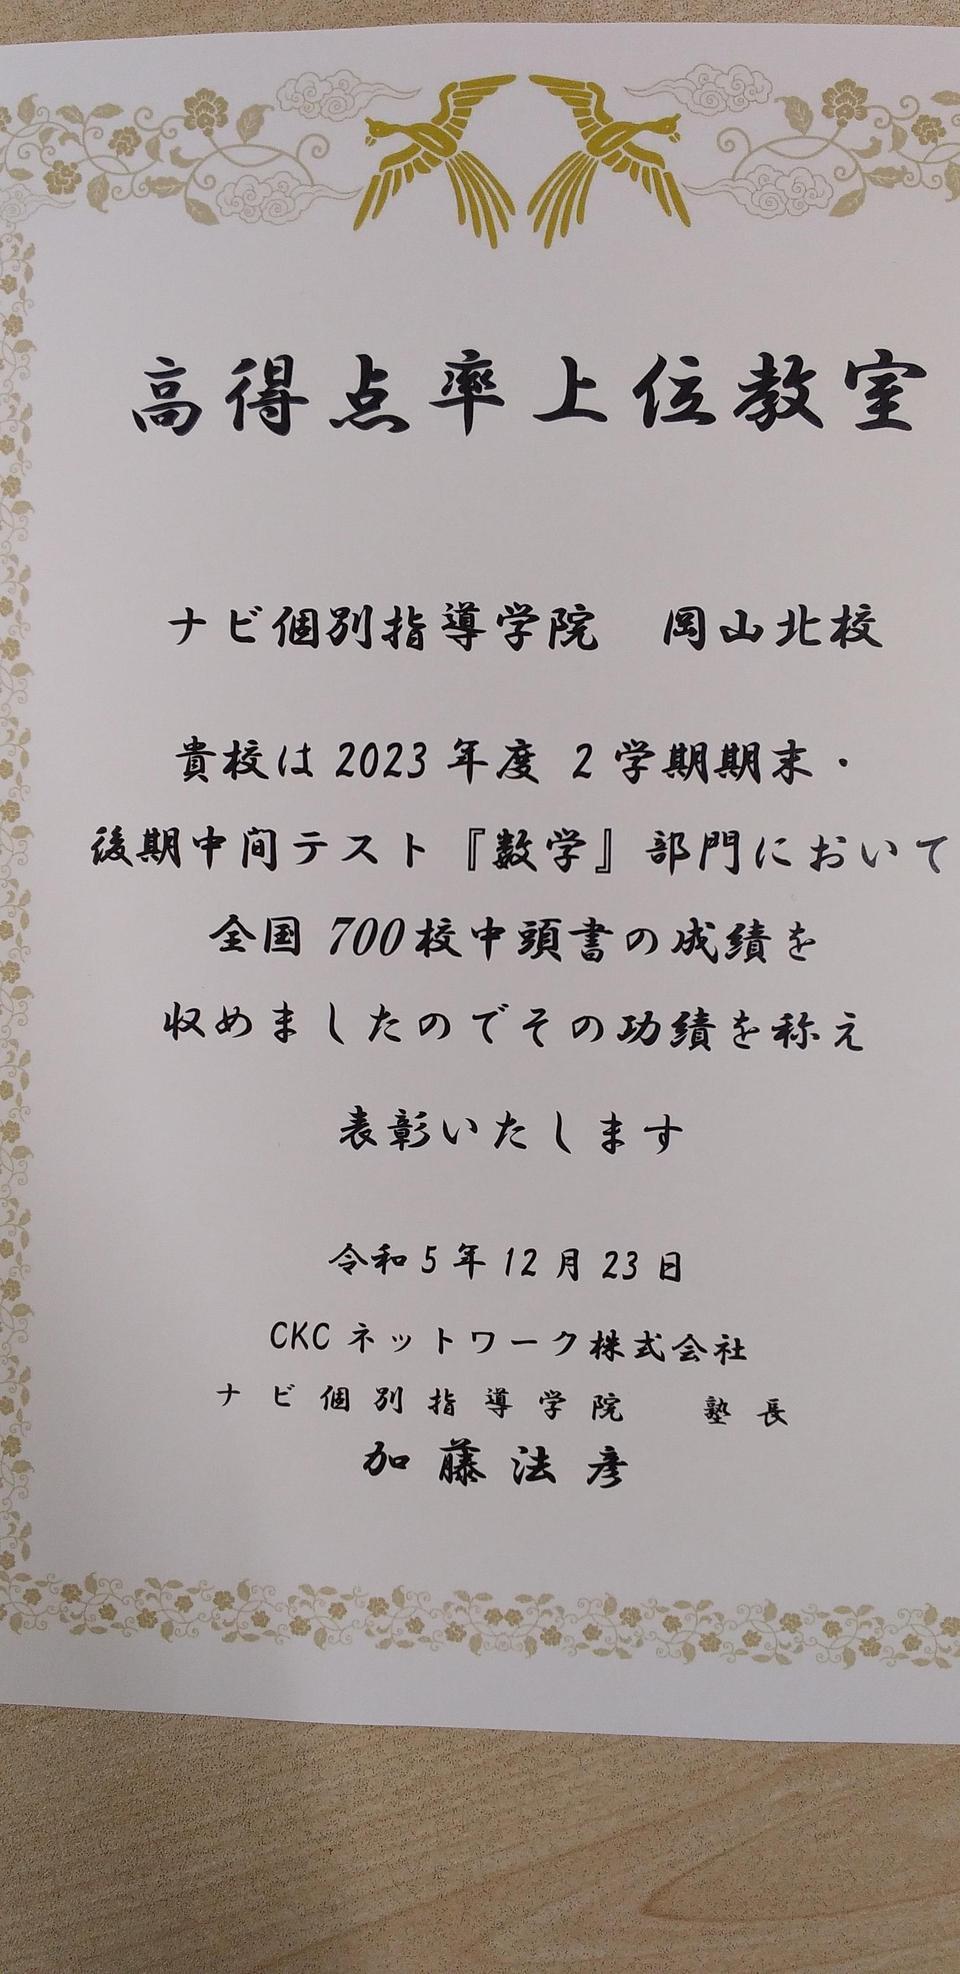 高得点率上位教室
ナビ個別指導学院　岡山北校
貴校は 2023 年度 2 学期期末・
後期中間テスト『数学』部門において
全国 700校中頭書の成績を
収めましたのでその功績を称え
表彰いたします
令和 5 年 12 月 23 日
CKC ネットワーク株式会社
ナビ個別指導学院　塾長
加藤法彦